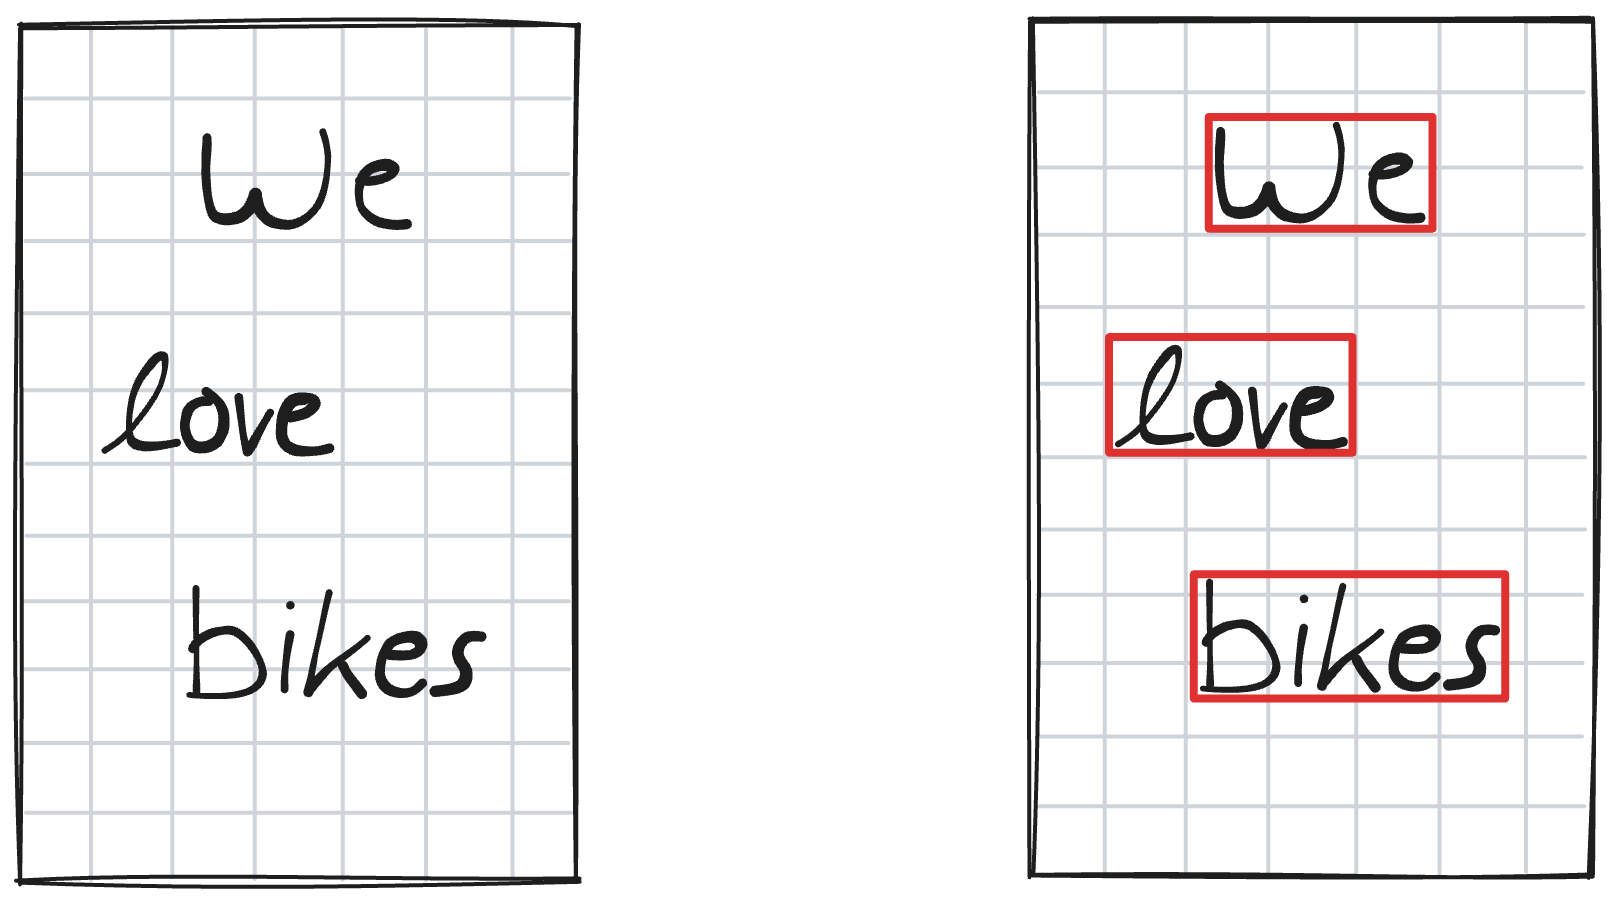 We
love
bikes
We
love
bikes